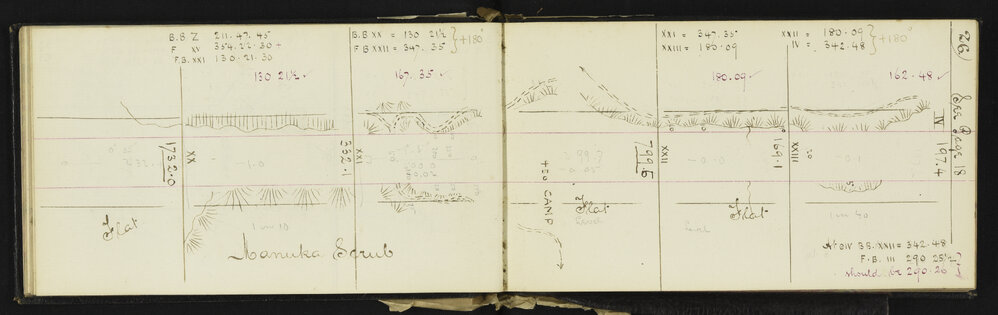 B.S Z 211. 47. 45"
F XV 354. 22. 30 +
F.B. XXI 130. 21. 30
130 21½ ✓
B.B XX = 130 21½
F.B XXII = 347. 35
+180°
167. 35 ✓
XXI = 347. 35
XXIII = 180.09
180.09 ✓
XXII = 180.09
IV = 342.48
+180°
162.48 ✓
26
See Page 18
1732.0
XX
-1.0
332.1
XXI
to CAMP
799.6
XXII
-0.0
169.1
XXIII
-0.1
IV 197.4
Flat
1 in 10
Manuka Scrub
Flat
Level
Flat
Level
1 in 40
At ΘIV BB. XXII = 342.48
F.B. III 290 25½
should be 290.26